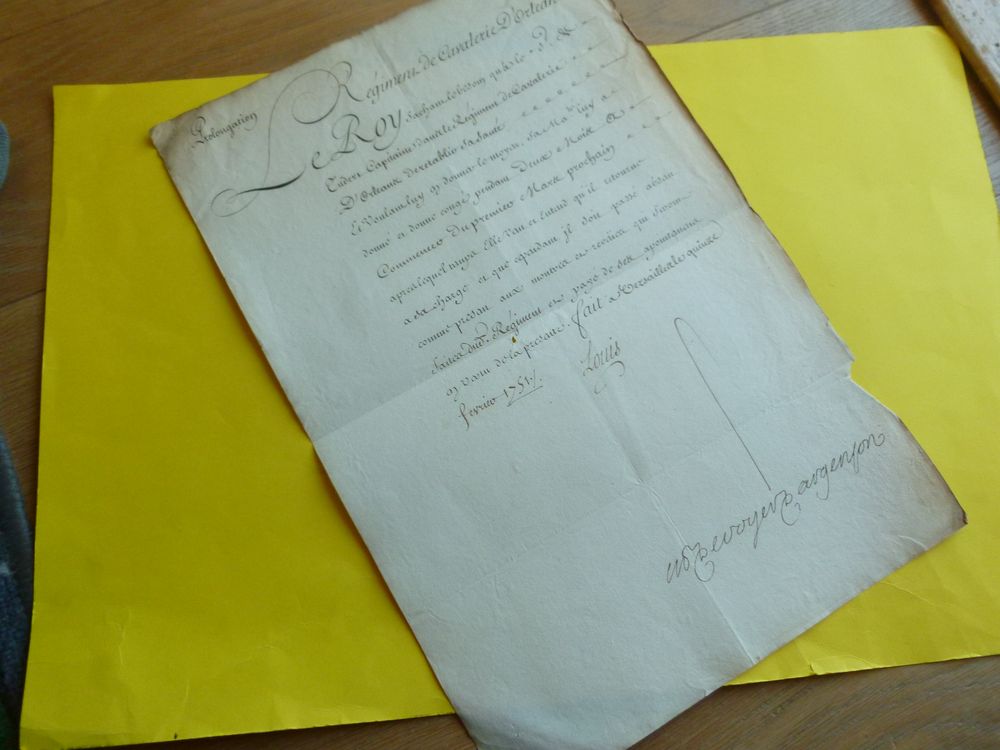 Régiment de Cavalerie D'Orleans
Prolongation
Le Roy Sachant le besoin qu'a le S. de
Capitaine dans le Régiment de Cavalerie
D'Orleans De retablir Sa Santé
Et Voulant luy en donner le moyen, Sa Ma.té luy a
donné et donne congé pendant Deux Mois A
Commencer Du premier Mars prochain
apres lequel temps Elle veut et Entend qu'il retourne
a sa charge et que cependant il soit passé absent
comme présent aux montres et revües qui seront
faites dud. Régiment et payé de ses apointemens
en vertu de la présente. fait a Versailles le quinze
fevrier 1751./.
Louis
M de voyer d argenson